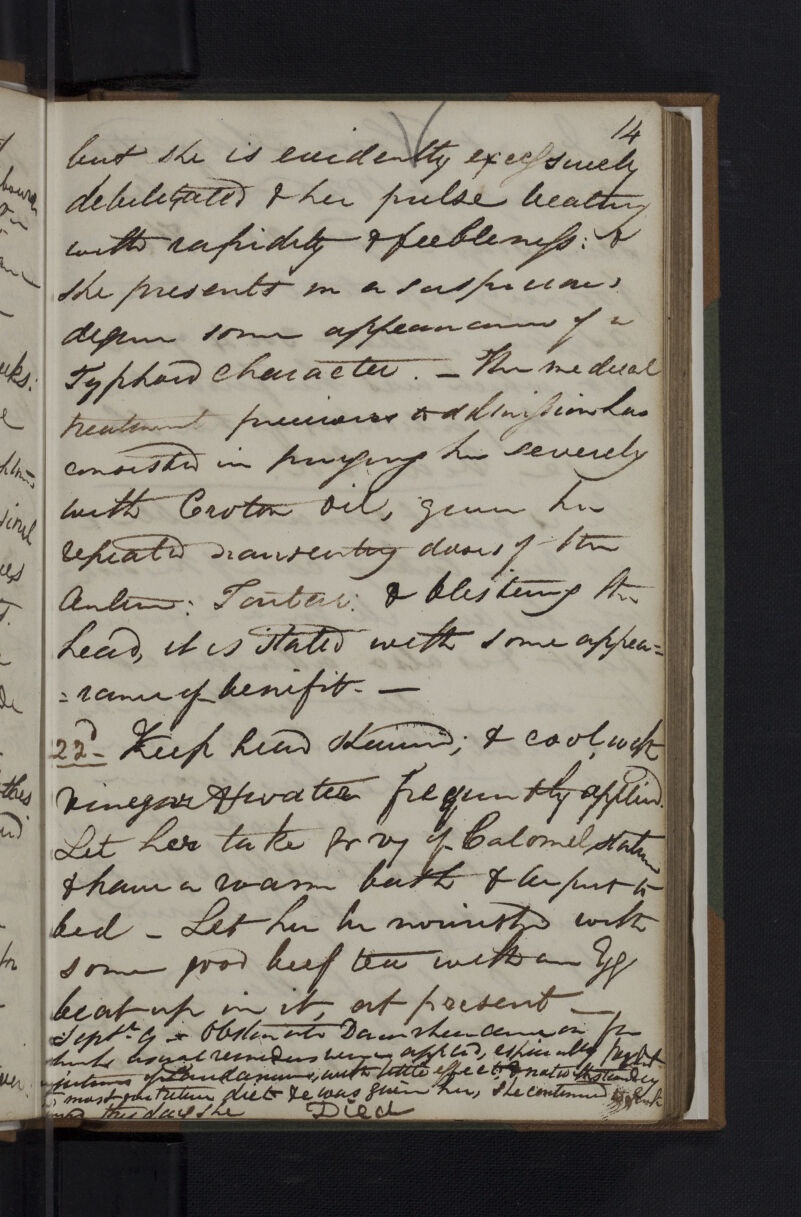 14
but she is evidently excessively
debilitated & her pulse beating
with rapidity & feebleness: &
she presents in a suspicious
degree some appearances of a
Typhoid character. — The medical
treatment previous to admission has
consisted in purging her severely
with Croton Oil, given her
repeated nauseating doses of the
Antim: Tartar: & blistering the
head, it is stated with some appea=
=rance of benefit. —
22d. Keep head shaved; & cool weak
vinegar & water frequently applied.
Let her take gr vj of Calomel statim
& have a warm bath & be put to
bed — Let her be nourished with
some good beef tea with an Egg
beat up in it, at present —
Septr. 9 — Obstinate Diarrhoea came on for
which usual remedies were applied, especially
of Laudanum, with little effect, & notwithstanding
most nutritive diet &c was given her, she continued to sink
and this day she Died